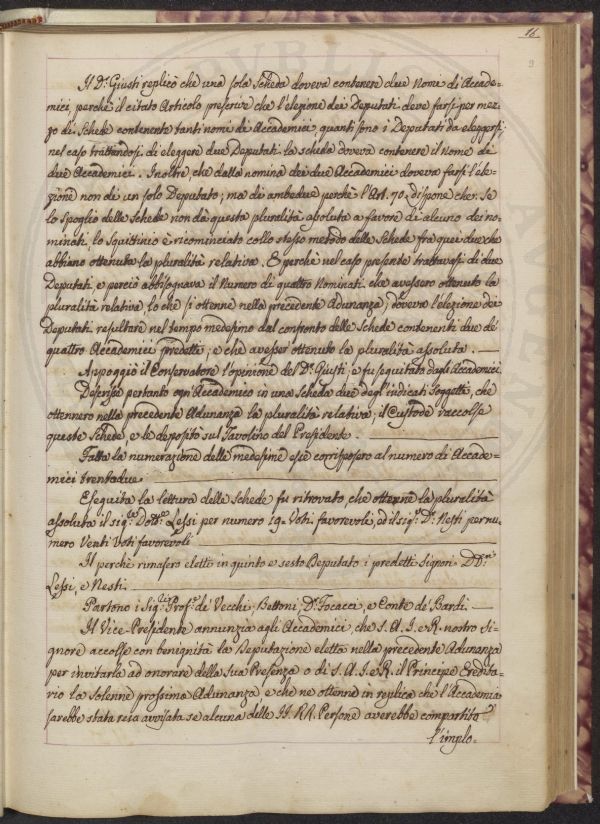 16.
Il D.r Giusti replicò che una sola Scheda doveva contenere due Nomi di Accade=
mici, perchè il citato Articolo prescrive che l'elezione dei Deputati deve farsi per mez=
zo di Schede contenente tanti nomi di Accademici, quanti sono i Deputati da eleggersi;
nel caso trattandosi di eleggere due Deputati la scheda doveva contenere il Nome di
due Accademici. Inoltre che dalla nomina dei due Accademici doveva farsi l'ele=
zione non di un solo Deputato; ma di ambedue perchè l'Art. 70. dispone che: Se
lo spoglio delle Schede non dà questa pluralità assoluta a favore di alcuno dei no=
minati, lo Squittinio è ricominciato collo stesso metodo delle Schede frà quei due che
abbiano ottenuta la pluralità relativa. E perchè nel caso presente trattavasi di due
Deputati e perciò abbisognava il Numero di quattro Nominati che avessero ottenuto la
pluralità relativa, lo che si ottenne nella precedente Adunanza; doveva l'elezione dei
Deputati resultare nel tempo medesimo dal confronto delle Schede contenenti due de'
quattro Accademici predetti, e che avesser ottenuto la pluralità assoluta.
Appoggiò il Conservatore l'opinione del D.r Giusti e fu seguitato dagli Accademici.
Descrisse pertanto ogni Accademico in una Scheda due degl'indicati Soggetti, che
ottennero nella precedente Adunanza la pluralità relativa; il Custode raccolse
queste Schede, e le depositò sul Tavolino del Presidente.
Fatta la numerazione delle medesime esse corrisposero al numero di Accade=
mici trentadue.
Eseguita la lettura delle schede fu ritrovato, che ottenne la pluralità
assoluta il sig.r Dott.r Lessi per numero 19. Voti favorevoli, ed il sig.r D.r Nesti per nu
mero Venti Voti favorevoli
Il perchè rimasero eletti in quinto e sesto Deputato i predetti Signori DD.ri
Lessi, e Nesti.
Partono i Sig.ri Prof.ri de' Vecchi Bettoni, D.r Tocacci, e Conte de' Bardi.
Il Vice-Presidente annunzia agli Accademici, che S. A. I. e R. nostro Si=
gnore accolse con benignità la Deputazione eletta nella precedente Adunanza
per invitarla ad onorare della Sua Presenza o di S. A. I. e R. il Principe Eredita=
rio la solenne prossima Adunanza e che ne ottenne in replica che l'Accademia
sarebbe stata resa avvisata se alcuna delle II. RR. Persone averebbe compartito
l'implo=